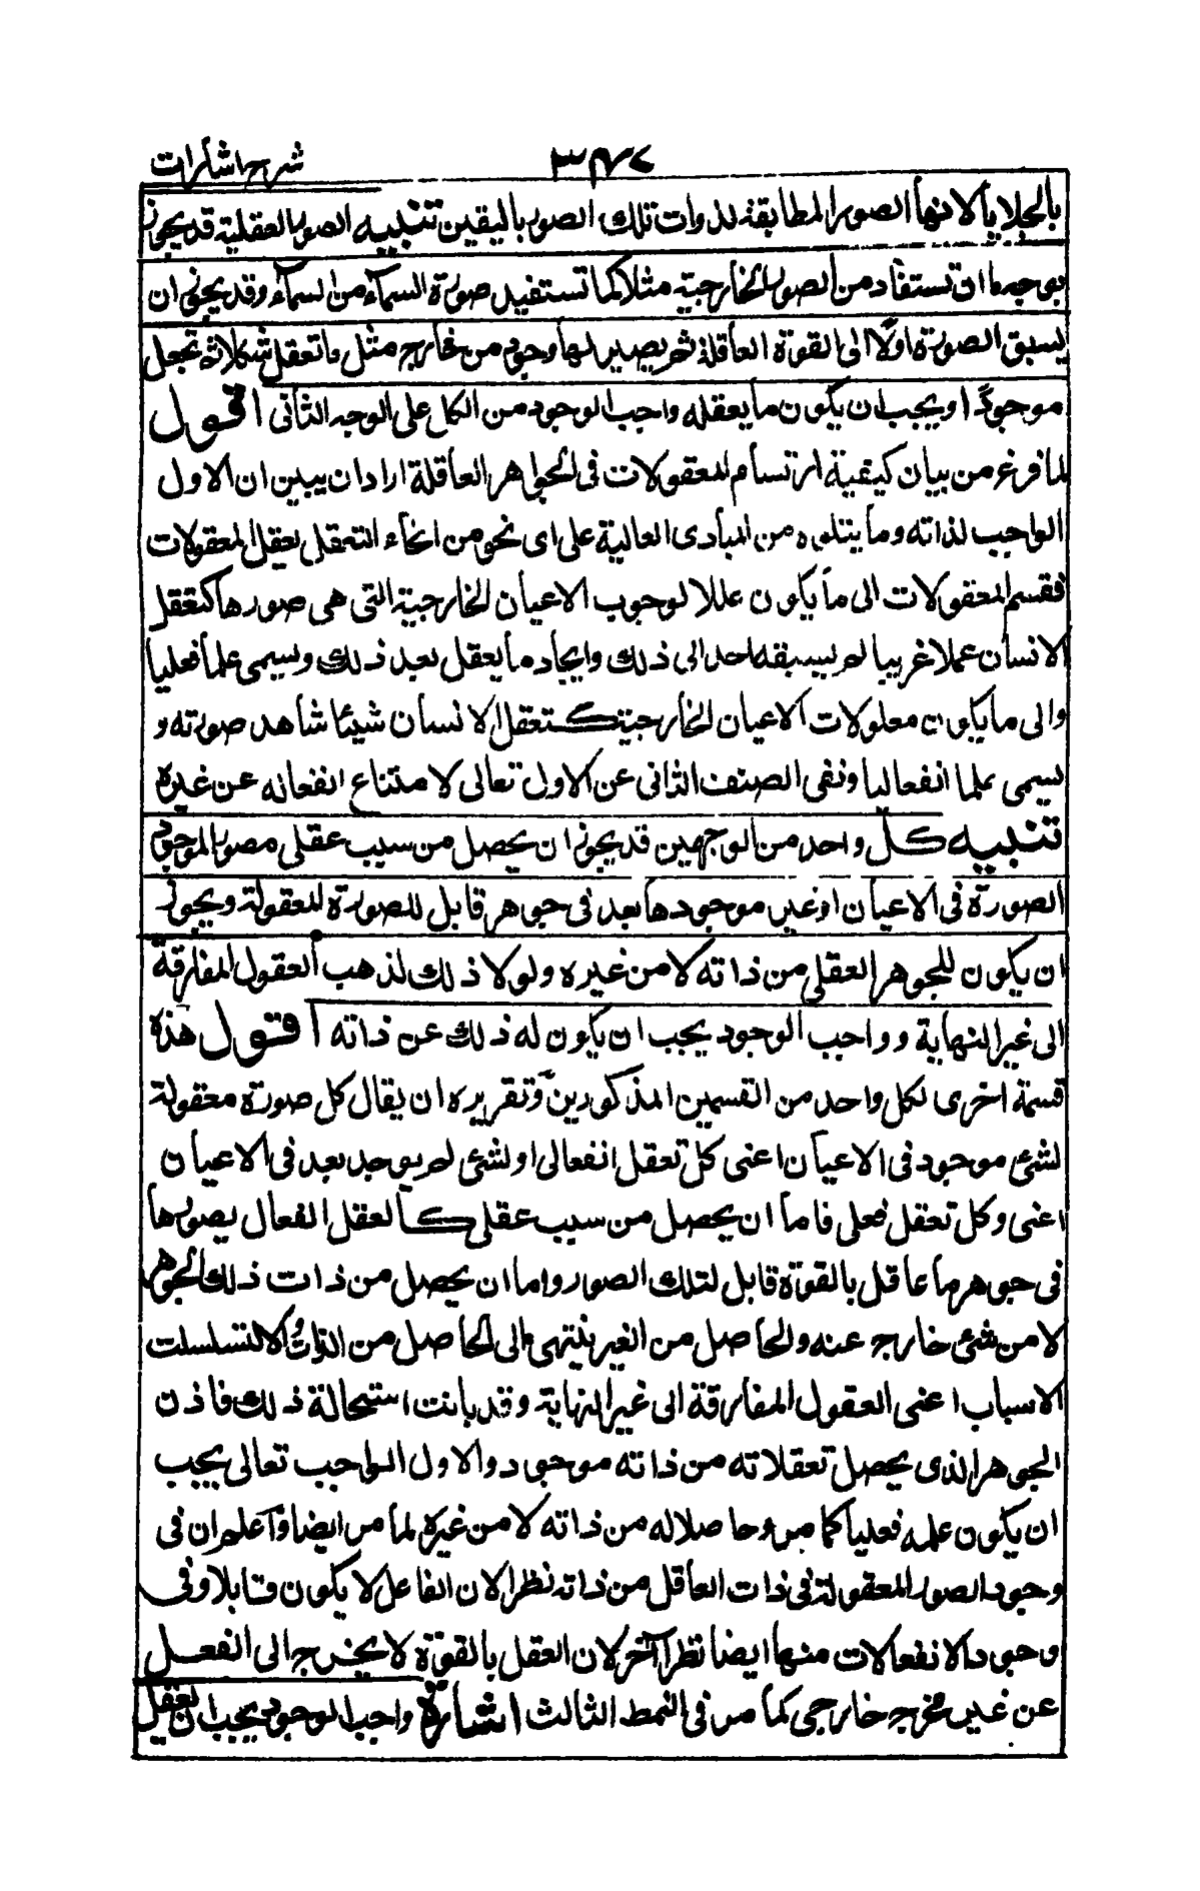 شرح اشارات
بالجلايا لانها الصور المطابقة لذوات تلك الصور باليقين تنبيه الصور العقلية قد يجوز
بوجه ما ان تستفاد من الصور الخارجية مثلا كما تستفيد صورة السماء من السماء وقد يجوز ان
يسبق الصورة اولا الى القوة العاقلة ثم يصير لها وجود من خارج مثل ما تعقل شكلا ثم تجعل
موجودا ويجب ان يكون ما يعقله واجب الوجود من الكل على الوجه الثانى اقول
لما فرغ من بيان كيفية ارتسام المعقولات فى الجواهر العاقلة اراد ان يبين ان الاول
الواجب لذاته وما يتلوه من المبادى العالية على اى نحو من انحاء التعقل يعقل المعقولات
فقسم المعقولات الى ما يكون عللا لوجوب الاعيان الخارجية التى هى صورها كتعقل
الانسان عملا غريبا لم يسبقه احد الى ذلك وايجاد ما يعقل بعد ذلك ويسمى علما فعليا
والى ما يكون معلولات الاعيان الخارجية كتعقل الانسان شيئا شاهد صورته و
يسمى علما انفعاليا ونفى الصنف الثانى عن الاول تعالى لامتناع انفعاله عن غيره
تنبيه كل واحد من الوجهين قد يجوز ان يحصل من سبب عقلى مصور لموجود
الصورة فى الاعيان او غير موجودها بعد فى جوهر قابل للصورة المعقولة ويجوز
ان يكون للجوهر العقلى من ذاته لا من غيره ولولا ذلك لذهب العقول المفارقة
الى غير النهاية وواجب الوجود يجب ان يكون له ذلك عن ذاته اقول هذه
قسمة اخرى لكل واحد من القسمين المذكورين وتقريره ان يقال كل صورة معقولة
لشئ موجود فى الاعيان اعنى كل تعقل انفعالى او لشئ لم يوجد بعد فى الاعيان
اعنى وكل تعقل فعلى فاما ان يحصل من سبب عقلى كالعقل الفعال يصورها
فى جوهر ما عاقل بالقوة قابل لتلك الصور واما ان يحصل من ذات ذلك الجوهر
لا من شئ خارج عنه والحاصل من الغير ينتهى الى الحاصل من الذات والا لتسلسلت
الاسباب اعنى العقول المفارقة الى غير النهاية وقد بانت استحالة ذلك فاذن
الجوهر الذى يحصل تعقلاته من ذاته موجود والاول الواجب تعالى يجب
ان يكون علمه فعليا كما مر وحاصلا له من ذاته لا من غيره لما مر ايضا واعلم ان فى
وجود الصور المعقولة فى ذات العاقل من ذاته نظرا لان الفاعل لا يكون قابلا وفى
وجود الانفعالات منها ايضا نظرا آخر لان العقل بالقوة لا يخرج الى الفعل
عن غير مخرج خارجى كما مر فى النمط الثالث اشارة واجب الوجود يجب ان يعقل